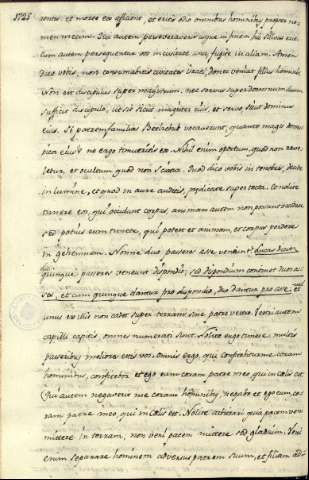 5725
rentes, et morte eos afficient et eritis odio omnibus hominibus propter no
men meum. Qui autem perseveraverit usque in finem hic salvus erit
cum autem persequentur vos in civitate ista, fugite in aliam. Amen
dico vobis, non consumabitis civitates Israel, donec veniat filius hominis
Non est discipulus super magistrum, nec servus super dominum suum
sufficit discipulo, ut sit sicut magister eius, et servo, sicut dominus
eius. Si patrem familias Beelzebub vocaverunt, quanto magis domes
ticos eius? ne ergo timueritis eos. Nihil enim opertum, quod non reve
letur, et occultum, quod non sciatur. Quod dico vobis in tenebris, dicite
in lumine, et quod in aure auditis, predicate super tecta. Et nolite
timere eos, qui occidunt corpus, animam autem non possunt occidere
sed potius eum timete, qui potest et animam, et corpus perdere
in gehennam. Nonne duo passeres asse veneunt
quinque passeres veneunt dipondio, sed dipondium continet duos a
ses, et cum quinque dantur pro dipondio, duo dantur pro asse, et
unus ex illis non cadet super terram sine patre vestro. Vestri autem
capilli capitis omnes numerati sunt. Nolite ergo timere: multis
passeribus meliores estis vos. Omnis ergo, qui confitebitur me coram
hominibus, confitebor et ego eum coram patre meo qui in celis est
Qui autem negaverit me coram hominibus, negabo et ego eum co
ram patre meo, qui in celis est. Nolite arbitrari quia pacem veni
mittere in terram, non veni pacem mittere sed gladium. Veni
enim separare hominem adversus patrem suum, et filiam ad